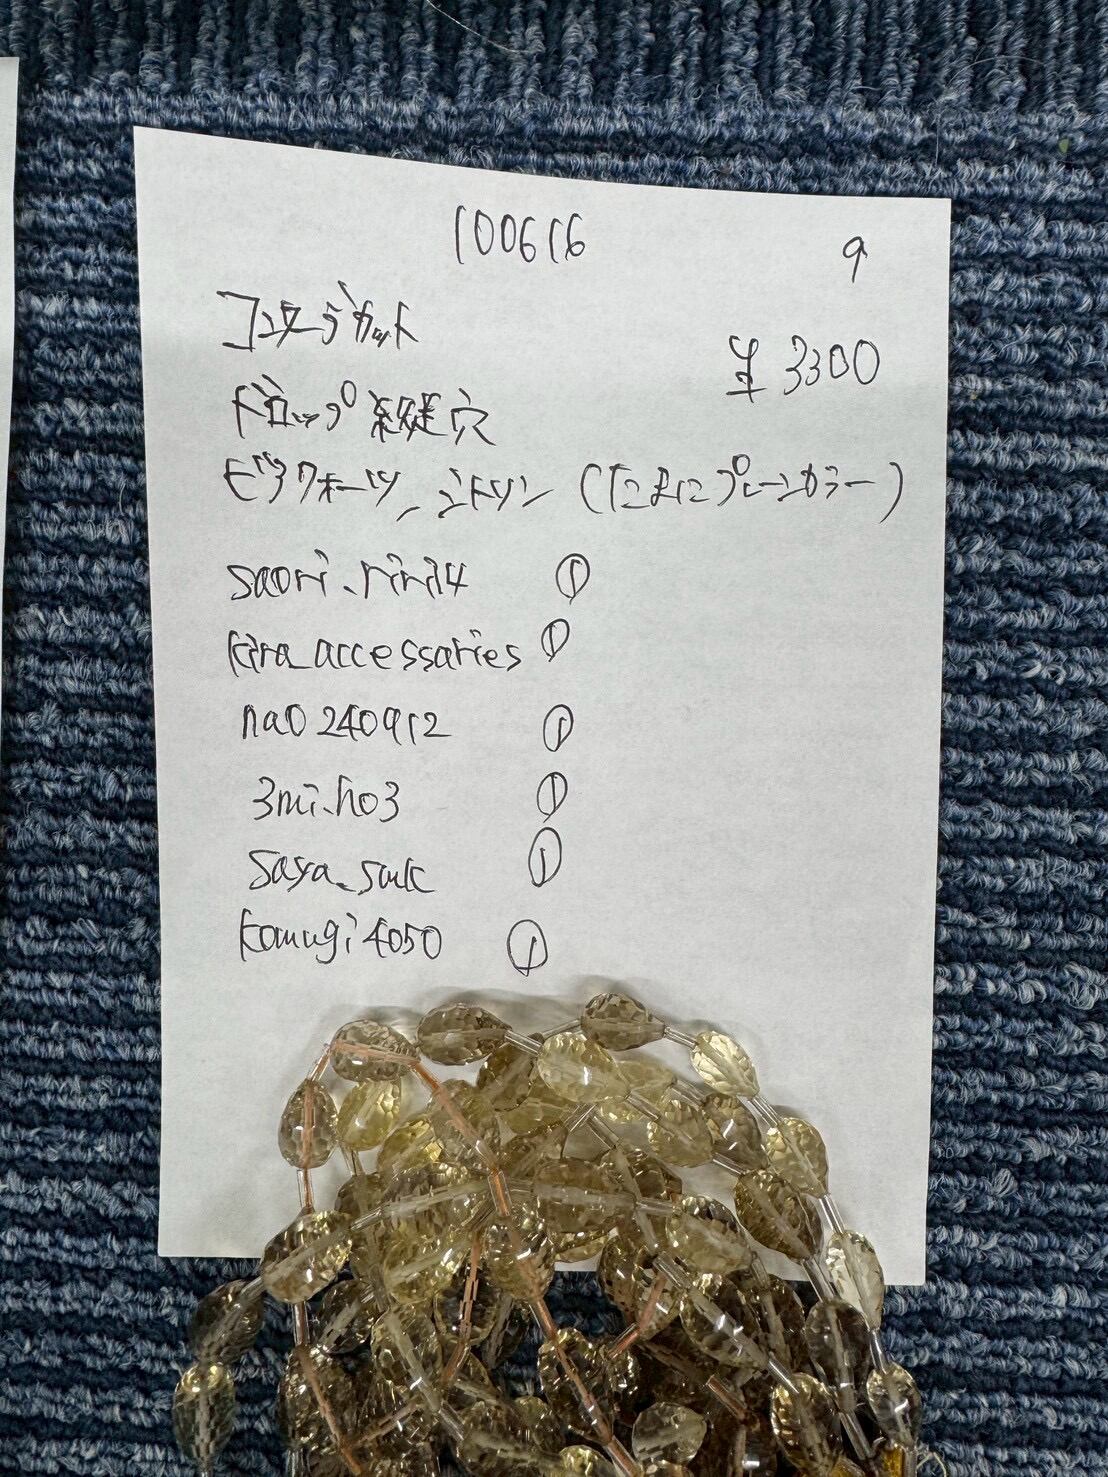 100616
9
コンケーブカット
¥3300
ドロップ縦穴
ビアクォーツ、シトリン (たまにプレーンカラー)
saori.riri14 ①
kira_accessaries ①
nao240912 ①
3mi.ho3 ①
saya_ ①
komugi4050 ①